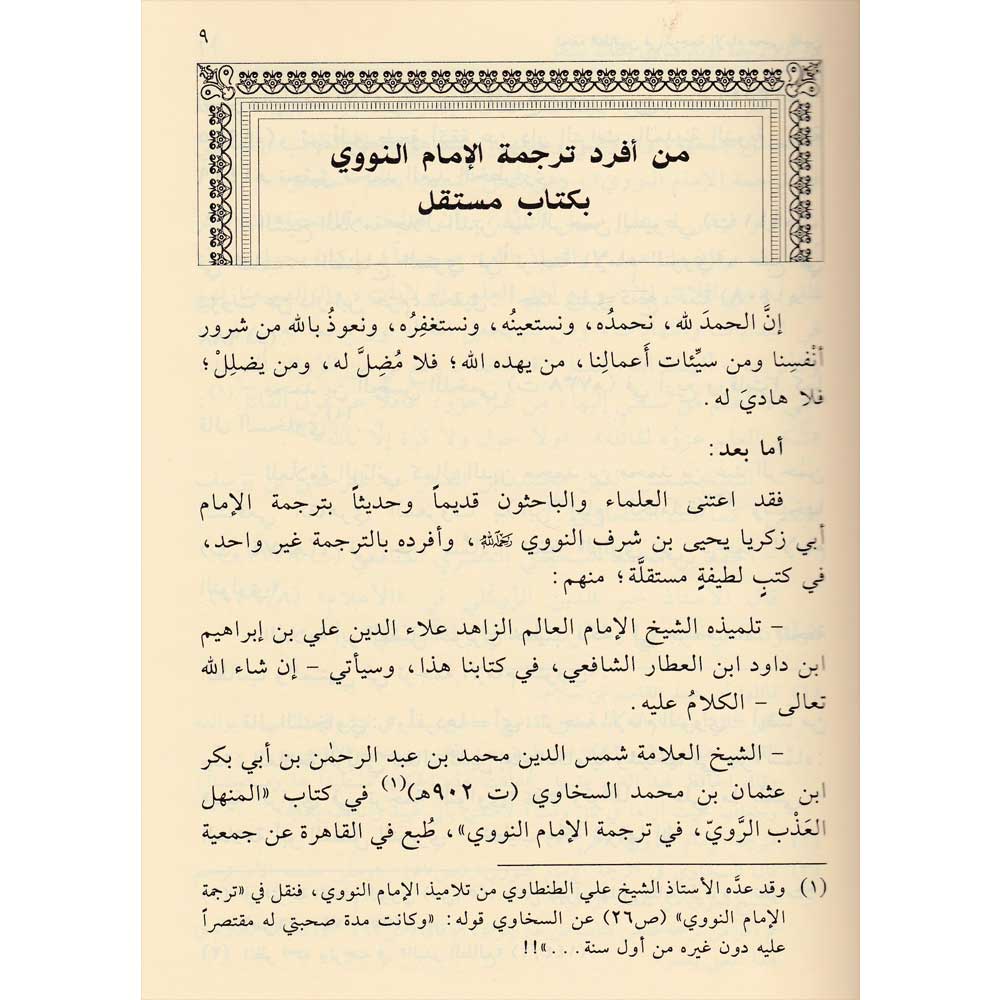 ٩
من أفرد ترجمة الإمام النووي
بكتاب مستقل
إنَّ الحمدَ لله، نحمدُه، ونستعينُه، ونستغفِرُه، ونعوذُ بالله من شرور
أنْفسِنا ومن سيِّئات أَعمالِنا، من يهده الله؛ فلا مُضِلَّ له، ومن يضلِلْ؛
فلا هاديَ له.
أما بعد:
فقد اعتنى العلماء والباحثون قديماً وحديثاً بترجمة الإمام
أبي زكريا يحيى بن شرف النووي رحمه الله، وأفرده بالترجمة غير واحد،
في كتبٍ لطيفةٍ مستقلَّة؛ منهم:
– تلميذه الشيخ الإمام العالم الزاهد علاء الدين علي بن إبراهيم
ابن داود ابن العطار الشافعي، في كتابنا هذا، وسيأتي – إن شاء الله
تعالى – الكلامُ عليه.
– الشيخ العلامة شمس الدين محمد بن عبد الرحمٰن بن أبي بكر
ابن عثمان بن محمد السخاوي (ت ٩٠٢هـ)(١) في كتاب «المنهل
العَذْب الرَّويّ، في ترجمة الإمام النووي»، طُبع في القاهرة عن جمعية
(١) وقد عدَّه الأستاذ الشيخ علي الطنطاوي من تلاميذ الإمام النووي، فنقل في «ترجمة
الإمام النووي» (ص٢٦) عن السخاوي قوله: «وكانت مدة صحبتي له مقتصراً
عليه دون غيره من أول سنة...»!!